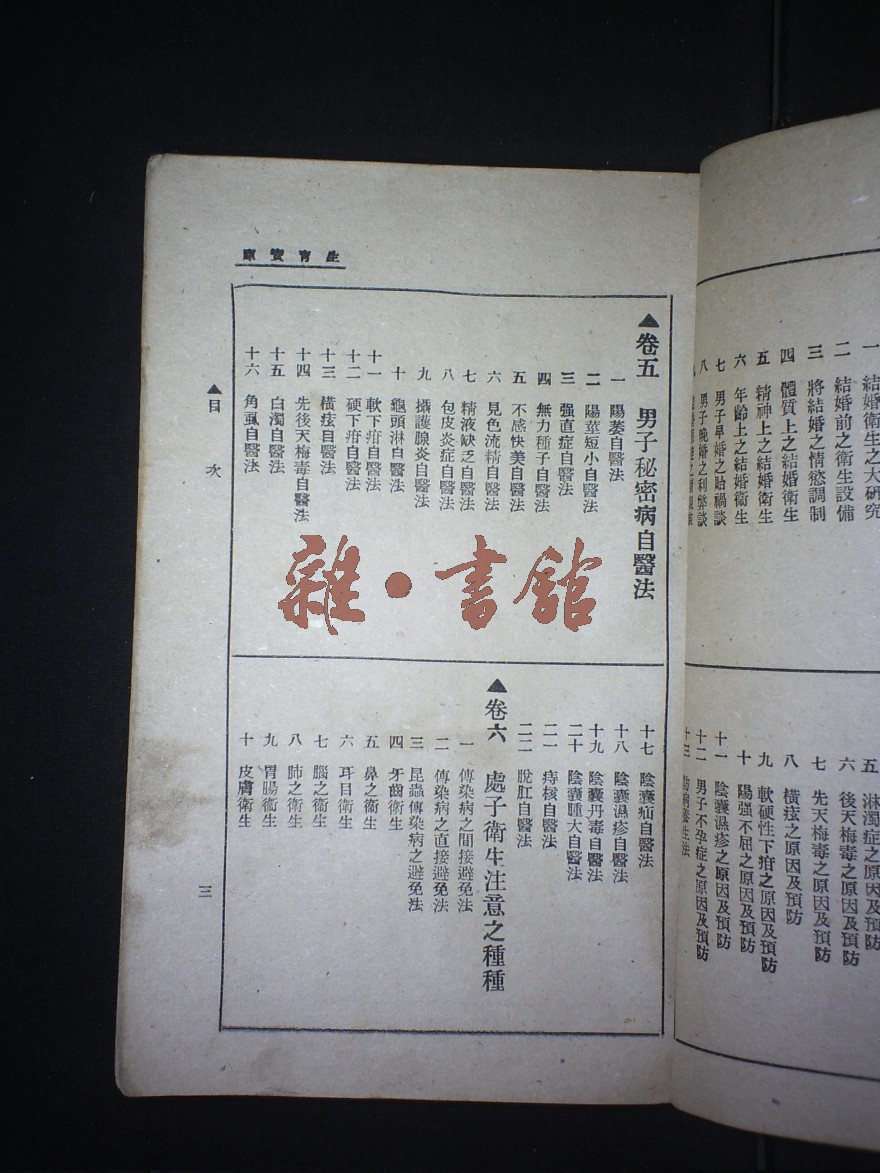 一 結婚衛生之大研究
二 結婚前之衛生設備
三 將結婚之情慾調制
四 體質上之結婚衛生
五 精神上之結婚衛生
六 年齡上之結婚衛生
七 男子早婚之貽禍談
八 男子晚婚之利弊談
五 淋濁症之原因及預防
六 後天梅毒之原因及預防
七 先天梅毒之原因及預防
八 橫痃之原因及預防
九 軟硬性下疳之原因及預防
十 陽强不屈之原因及預防
十一 陰囊濕疹之原因及預防
十二 男子不孕症之原因及預防
十三 防病養生法
生育寶庫
▲卷五 男子秘密病自醫法
一 陽萎自醫法
二 陽莖短小自醫法
三 强直症自醫法
四 無力種子自醫法
五 不感快美自醫法
六 見色流精自醫法
七 精液缺乏自醫法
八 包皮炎症自醫法
九 攝護腺炎自醫法
十 龜頭淋自醫法
十一 軟下疳自醫法
十二 硬下疳自醫法
十三 橫痃自醫法
十四 先後天梅毒自醫法
十五 白濁自醫法
十六 角虱自醫法
十七 陰囊疝自醫法
十八 陰囊濕疹自醫法
十九 陰囊丹毒自醫法
二十 陰囊腫大自醫法
二一 痔核自醫法
二二 脫肛自醫法
▲卷六 處子衛生注意之種種
一 傳染病之間接避免法
二 傳染病之直接避免法
三 昆蟲傳染病之避免法
四 牙齒衛生
五 鼻之衛生
六 耳目衛生
七 腦之衛生
八 肺之衛生
九 胃腸衛生
十 皮膚衛生
▲目 次
三
雜·書館